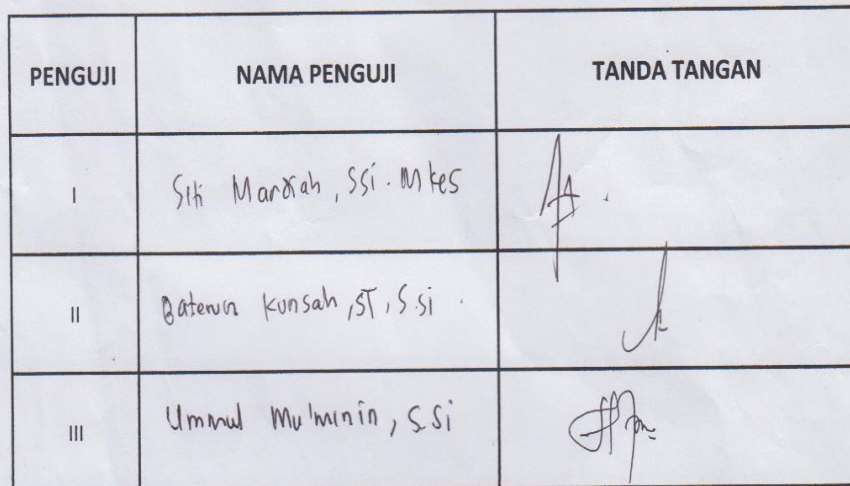 PENGUJI NAMA PENGUJI TANDA TANGAN
I Siti Mardiah, SSi. Mkes
II Baterun Kunsah, ST, S.si
III Ummul Mu'minin, S.Si